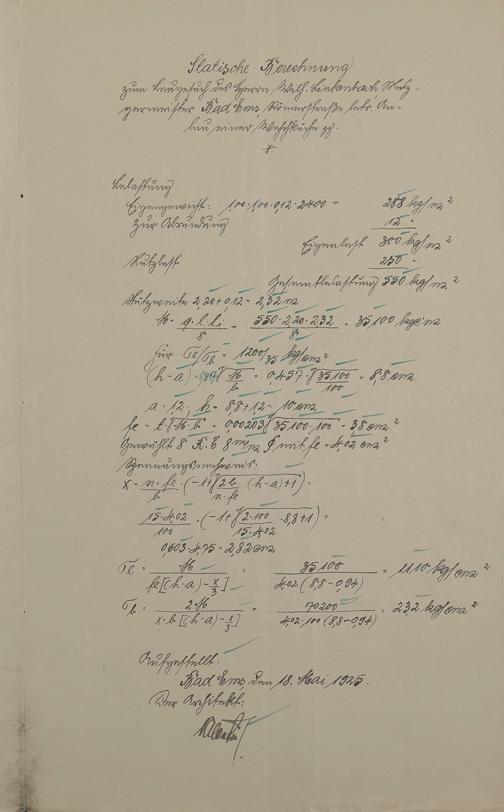 Statische Berechnung
zum Baugesuch des Herrn Wilh. Linkenbach Metz-
germeister Bad Ems, Römerstraße betr. An-
bau einer Waschküche pp.
Belastung
Eigengewicht: 1,00·1,00·0,12·2400 = 288 kg/m²
Zur Abrundung 12 "
Eigenlast 300 kg/m²
Nutzlast 250 "
Gesamtbelastung 550 kg/m²
Stützweite 2,20+0,12 = 2,32 m
M = q·l·li / 8 = 550·2,20·2,32 / 8 = 35100 kgcm
für σe/σb = 1200/35 kg/cm²
(h-a) = √M/b = 0,457·√35100/100 = 8,8 cm
a = 1,2; h = 8,8+1,2 = 10 cm
fe = t·√M·b = 0,00203√35100·100 = 3,8 cm²
Gewählt 8 R.E 8 m/m ∅ mit fe = 4,02 cm²
Spannungsnachweis:
x = n·fe / b · (-1+√2b / n·fe (h-a)+1) =
15·4,02 / 100 · (-1+√2·100 / 15·4,02 · 8,8+1) =
0,603·4,75 = 2,82 cm
σe = M / fe[(h-a)-x/3] = 35100 / 4,02(8,8-0,94) = 1110 kg/cm²
σb = 2M / x·b[(h-a)-x/3] = 70200 / 4,02·100(8,8-0,94) = 23,2 kg/cm²
Aufgestellt:
Bad Ems, den 18. Mai 1925.
Der Architekt: